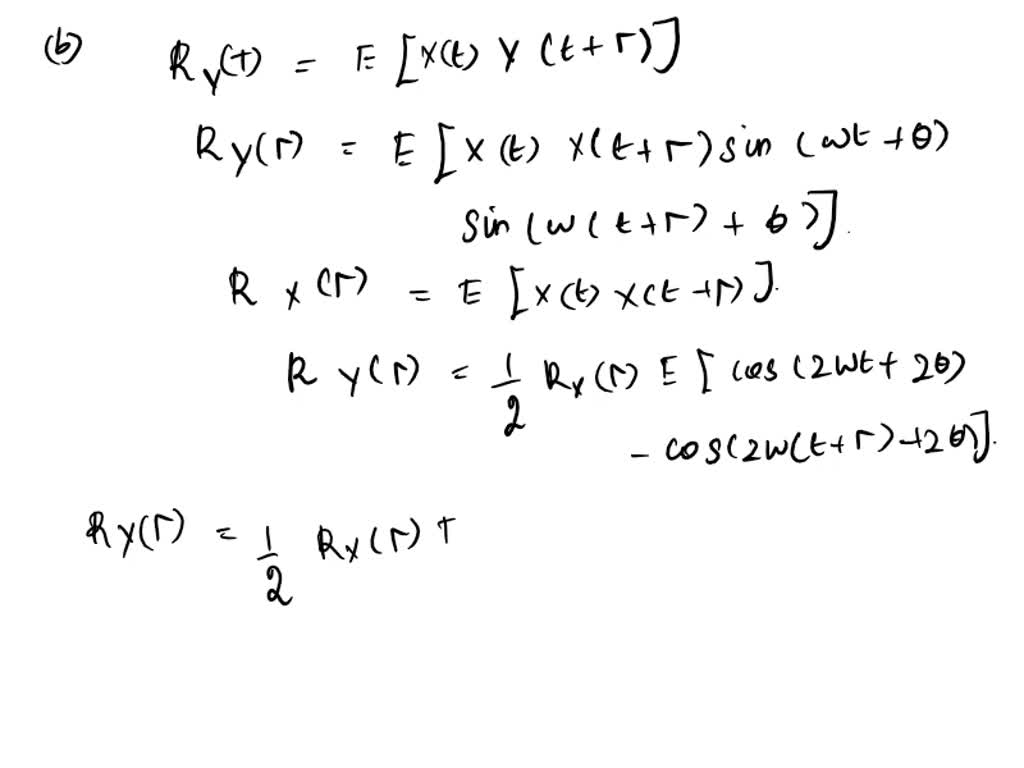 (b) R_Y(τ) = E [X(t) Y (t+τ)]
R_Y(τ) = E [X (t) X(t+τ) sin (ωt +θ)
sin (ω(t+τ) + θ)].
R_X(τ) = E [X(t) X(t+τ)].
R_Y(τ) = 1/2 R_X(τ) E [cos (2ωt + 2θ)
- cos(2ω(t+τ)+2θ)].
R_Y(τ) = 1/2 R_X(τ) +